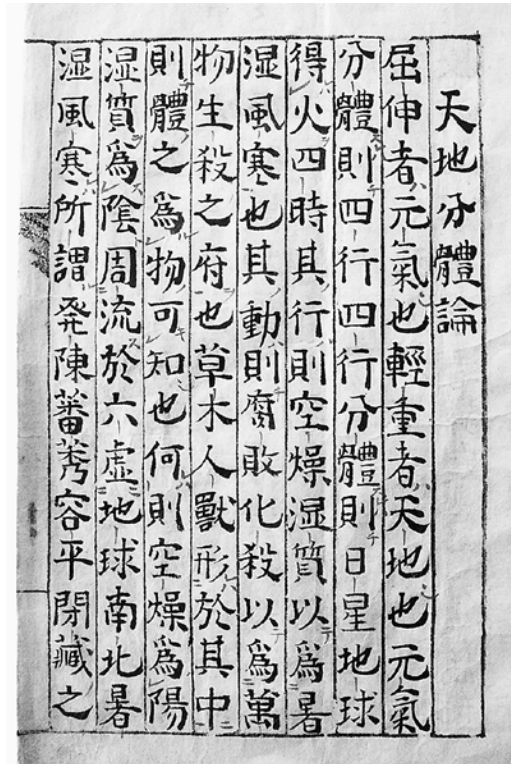 天地分體論
屈伸者元氣也輕重者天地也元氣
分體則四行四行分體則日星地球
得火四時其行則空燥湿質以爲暑
湿風寒也其動則腐敗化殺以爲萬
物生殺之府也草木人獸形於其中
則體之爲物可知也何則空燥爲陽
湿質爲陰周流於六虛地球南北暑
湿風寒所謂発陳蕃莠容平閉藏之